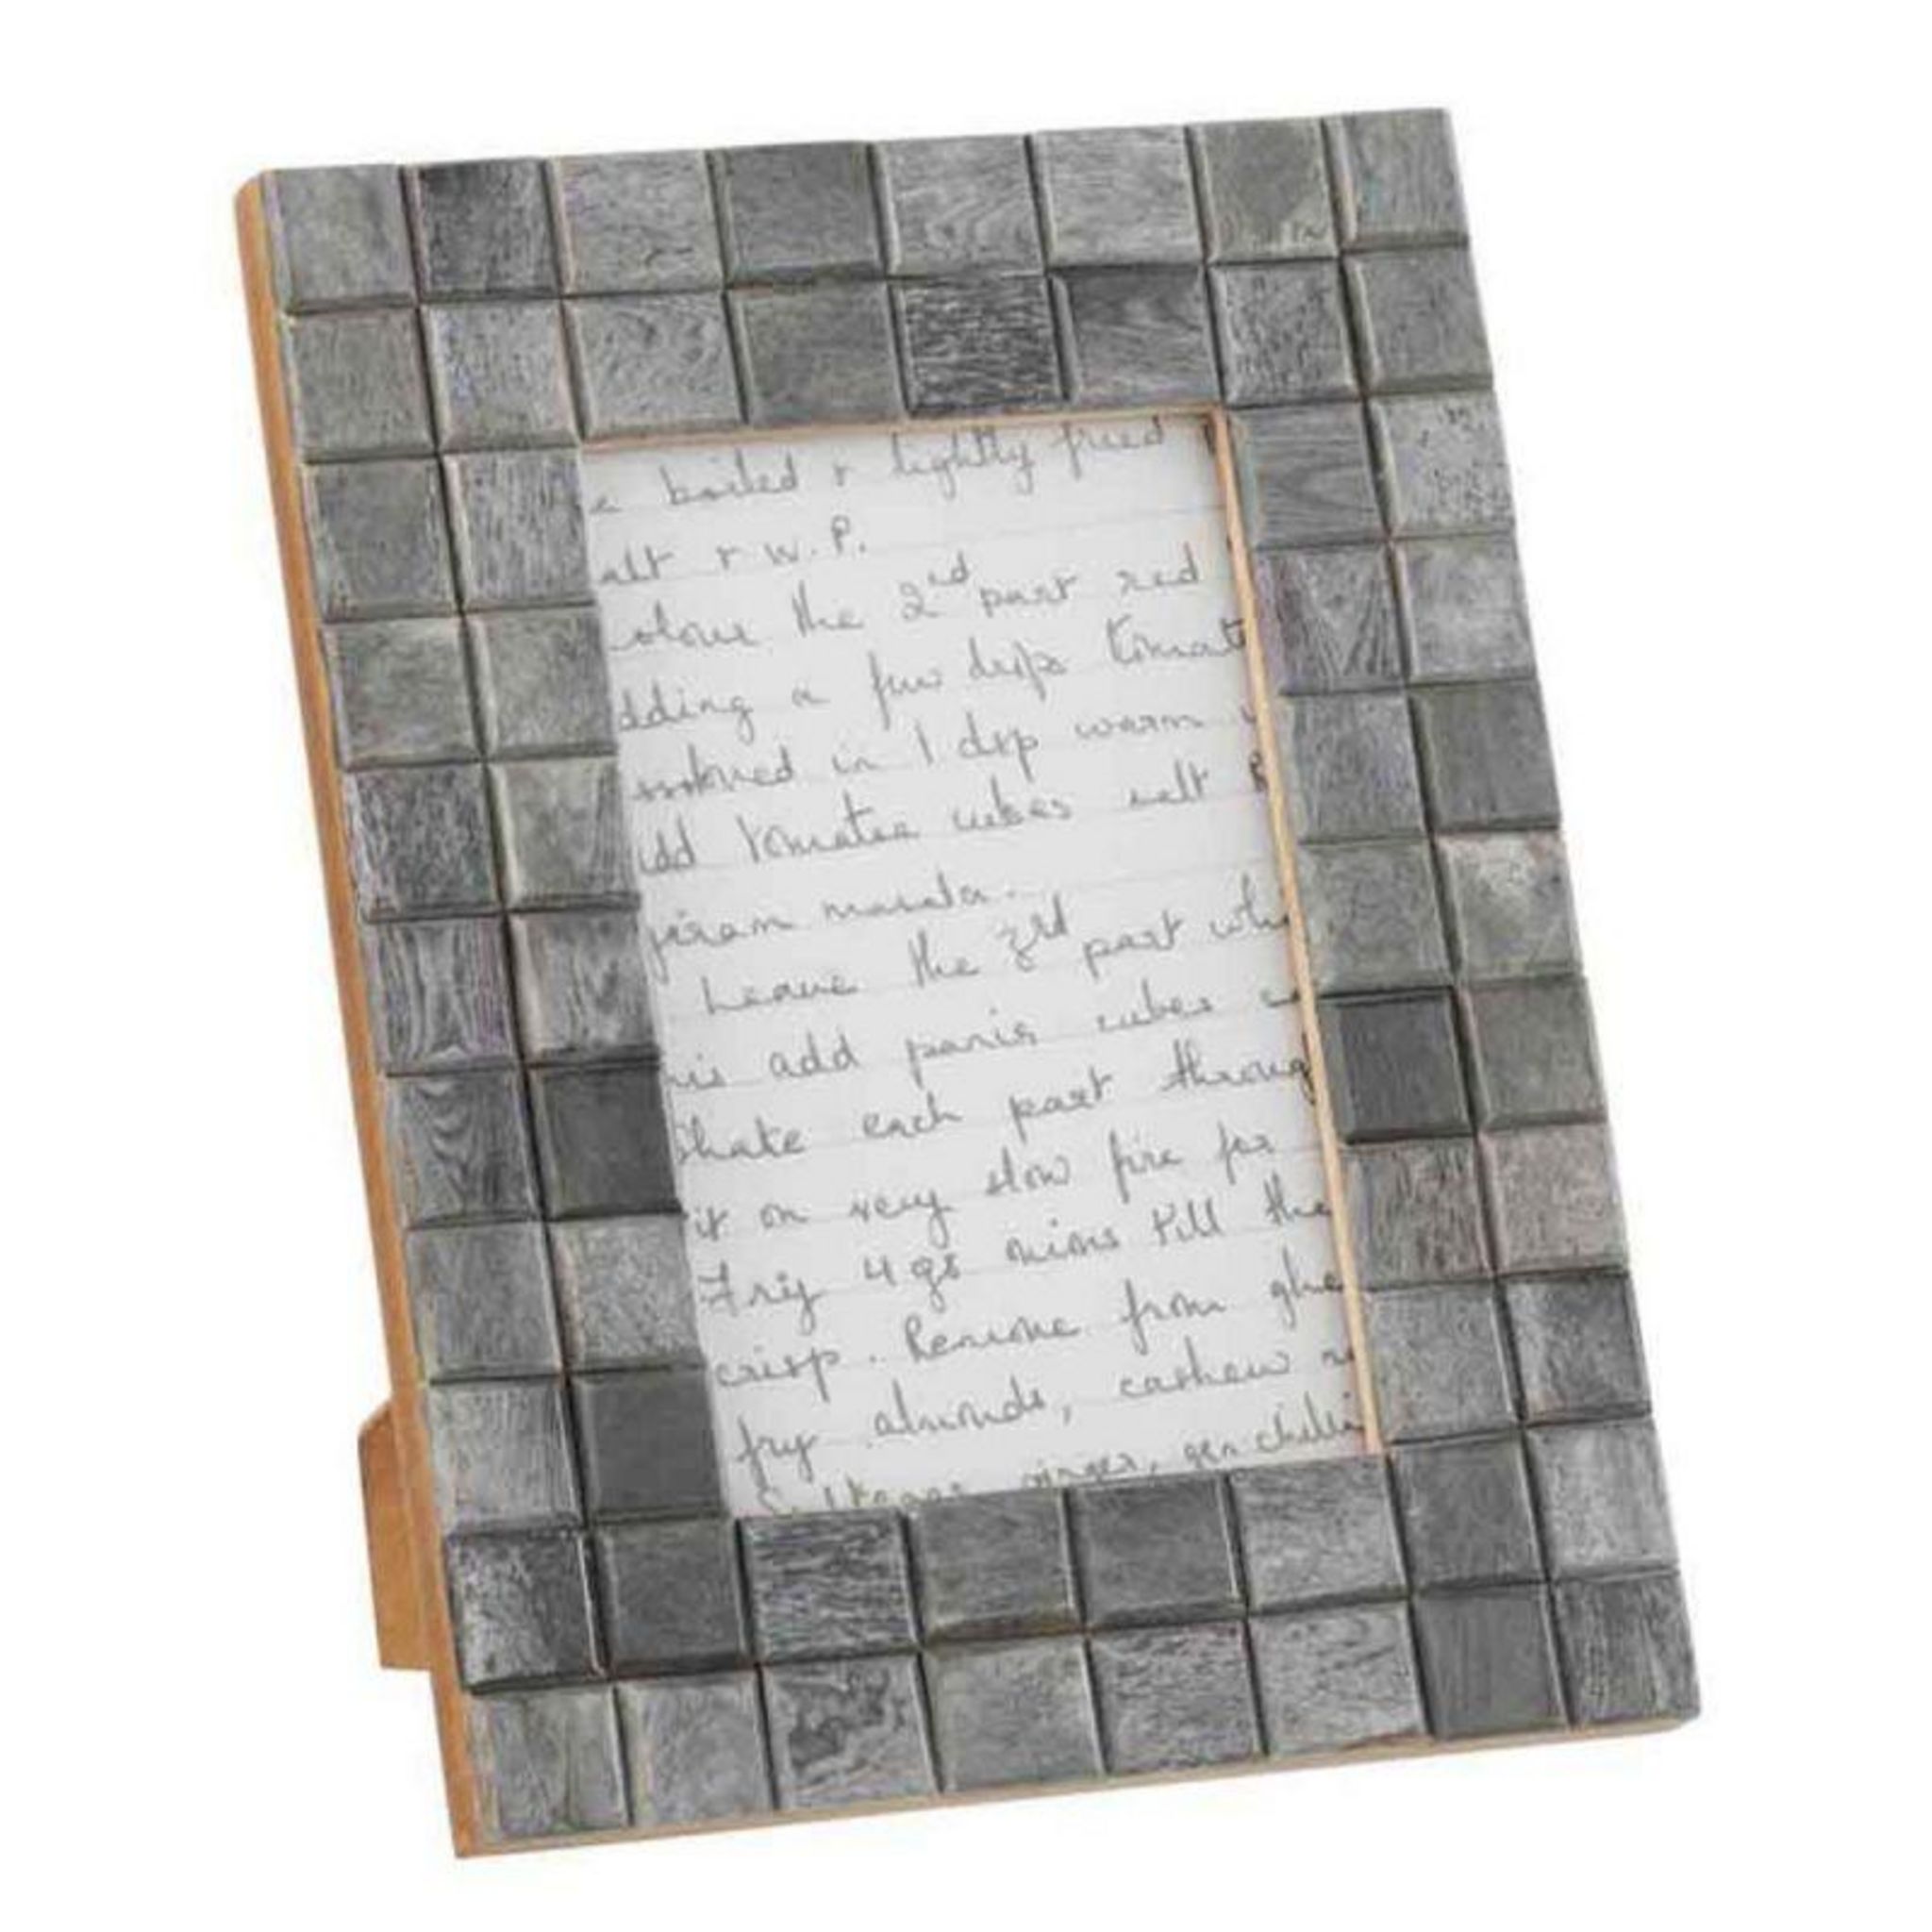 boiled & lightly fried
alt & W.P.
olour the 2nd part red
dding a few drps tomat
issolved in 1 drp warm
dd tomatoe cubes salt &
garam masala.
Leave the 3rd part whi
is add panir cubes
bhake each part throug
it on very slow fire for
Fry 4 gs mins till the
crisp. Remove from ghe
fry almonds, cashew n
Sultanas ginger, grn chilli